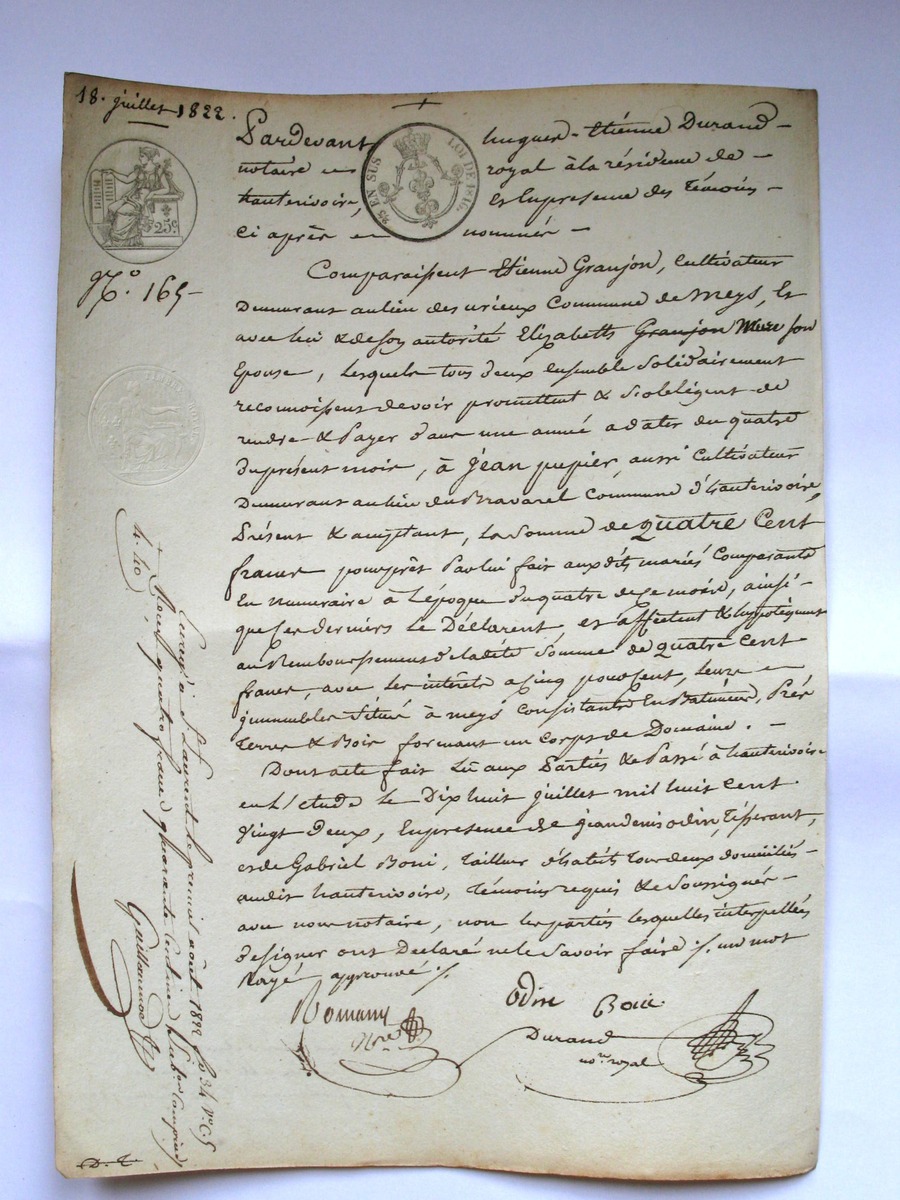 18. juillet 1822.
Pardevant hugues-Etiénne Durand
notaire royal à la résidence de
hauterivoire, et en presence des témoins
ci après nommés
25 EN SUS LOI DE 1816.
25c
N.o 165
Comparaissent Etienne Granjon, Cultivateur
Demeurant au lieu des Vrieux Commune de meys, Et
avec lui & de son autorité Elizabeth Granjon son
Epouse, lesquels tous deux ensemble Solidairement
reconnoissent devoir promettent & s'oblégent de
rendre & Payer dans une année a dater du quatre
du présent mois, à jean pupier, aussi Cultivateur
Demeurant au lieu du Bravarel Commune d'hauterivoire,
Présent & acceptant, la Somme de quatre Cent
francs pour prêt Par lui fait aux dits mariés Comparants
En numeraire à l'époque du quatre de ce mois, ainsi
que ces derniers le Déclarent, et affectent & hypotèquent
au Remboursement de ladite Somme de quatre Cent
francs, avec les intérêts a Cinq pour Cent, leurs
jmmeubles Situés à meys Consistants En Batimens, Prés
terres & Bois formant un Corps de Domaine.
Dont acte fait Lu aux Parties & Passé à hauterivoire
en l'etude le Dix huit juillet mil huit Cent
vingt Deux, En presence de jean denis odin, tisserant,
et de Gabriel Boni, tailleur d'habits tous deux domiciliés
audit hauterivoire, témoins requis & Soussignés
avec nous notaire, non les parties lesquelles interpellées
de signer ont Declaré ne le Savoir faire ./. un mot
Rayé approuvé ./.
Romany
Nre
Odin Boni
Durand
nore royal
4.40
Enreg.é à St Laurent le premier août 1822 fo 34 Vo C.5
Reçu quatre francs quarante Centimes Subon Compris
Guillaumod
D. T.